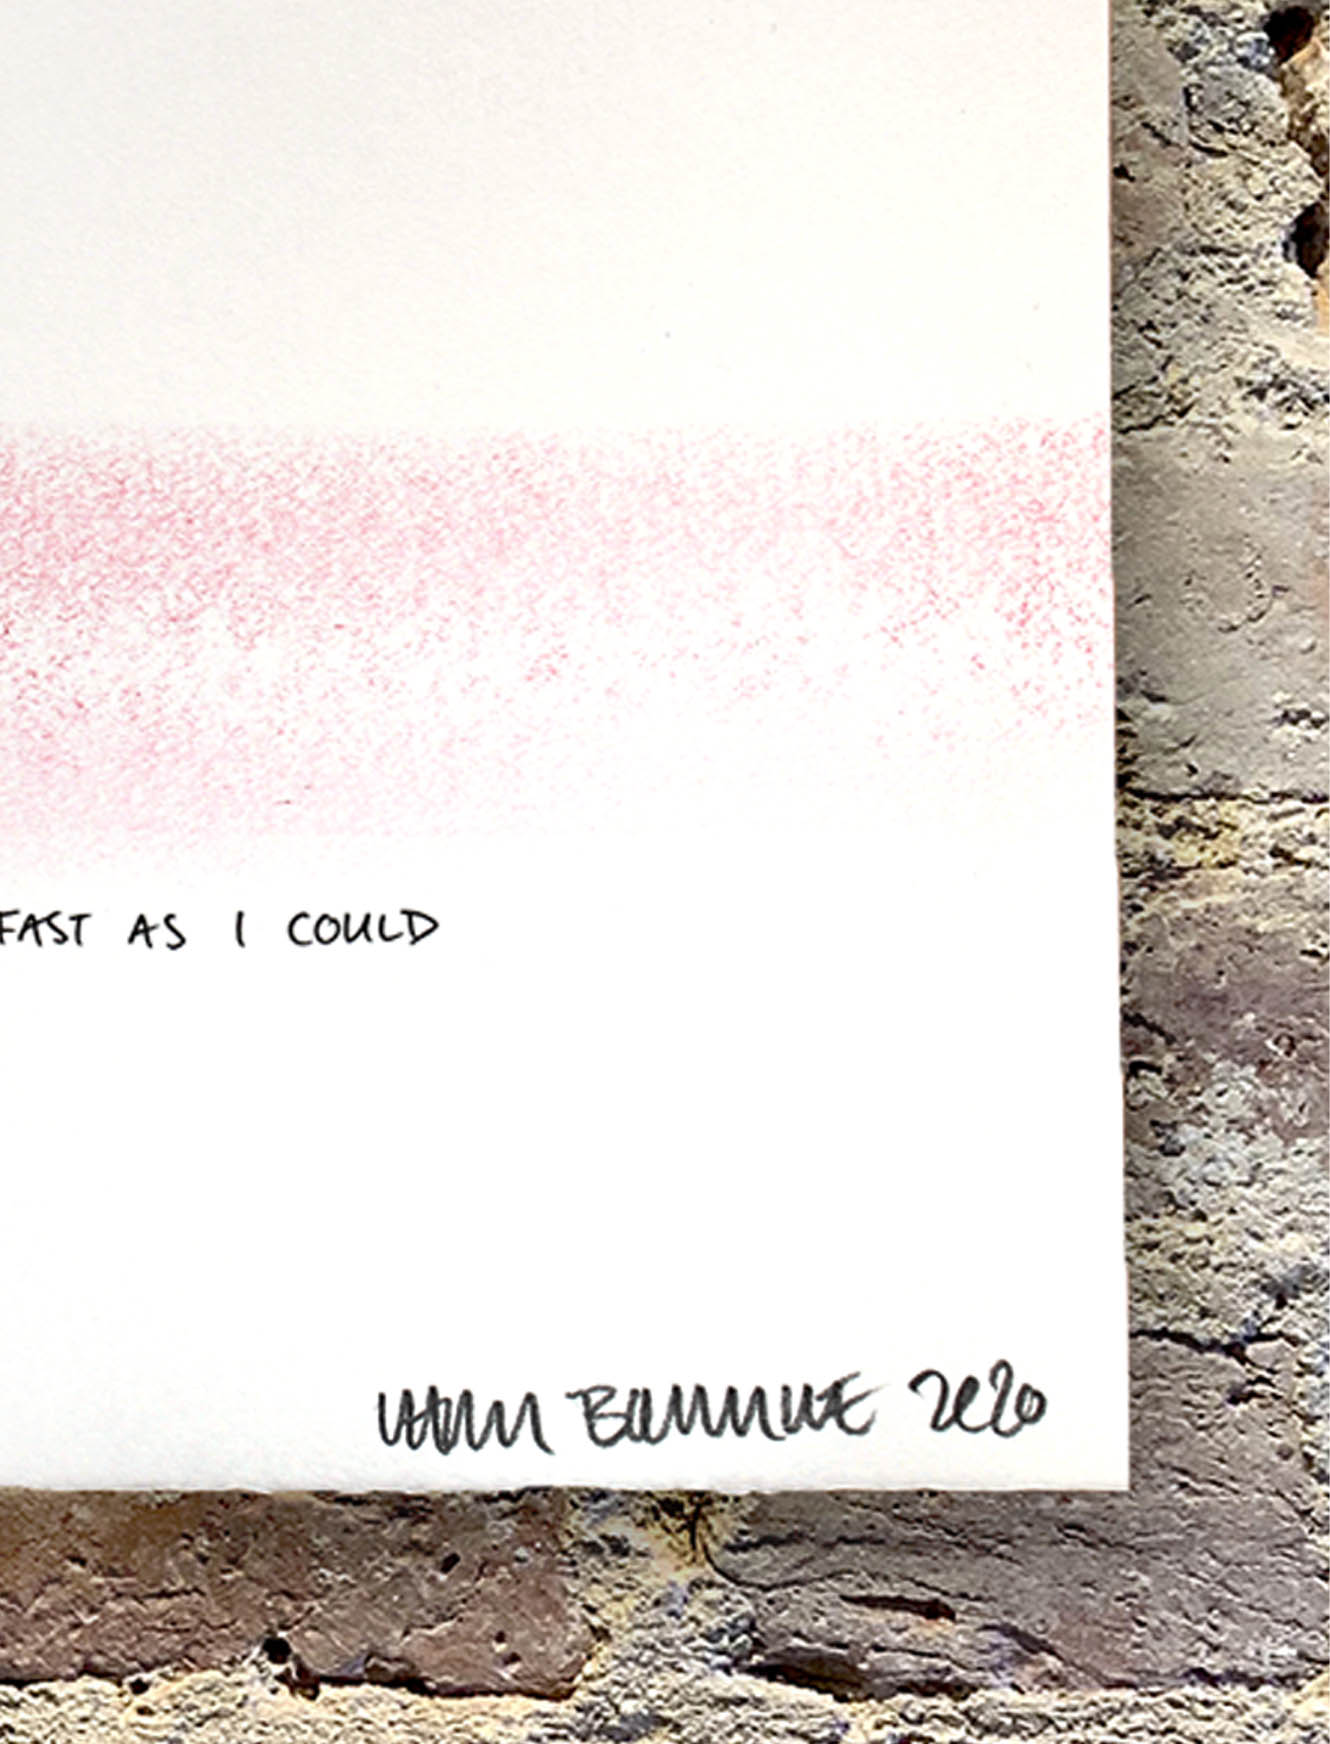 FAST AS I COULD
2020